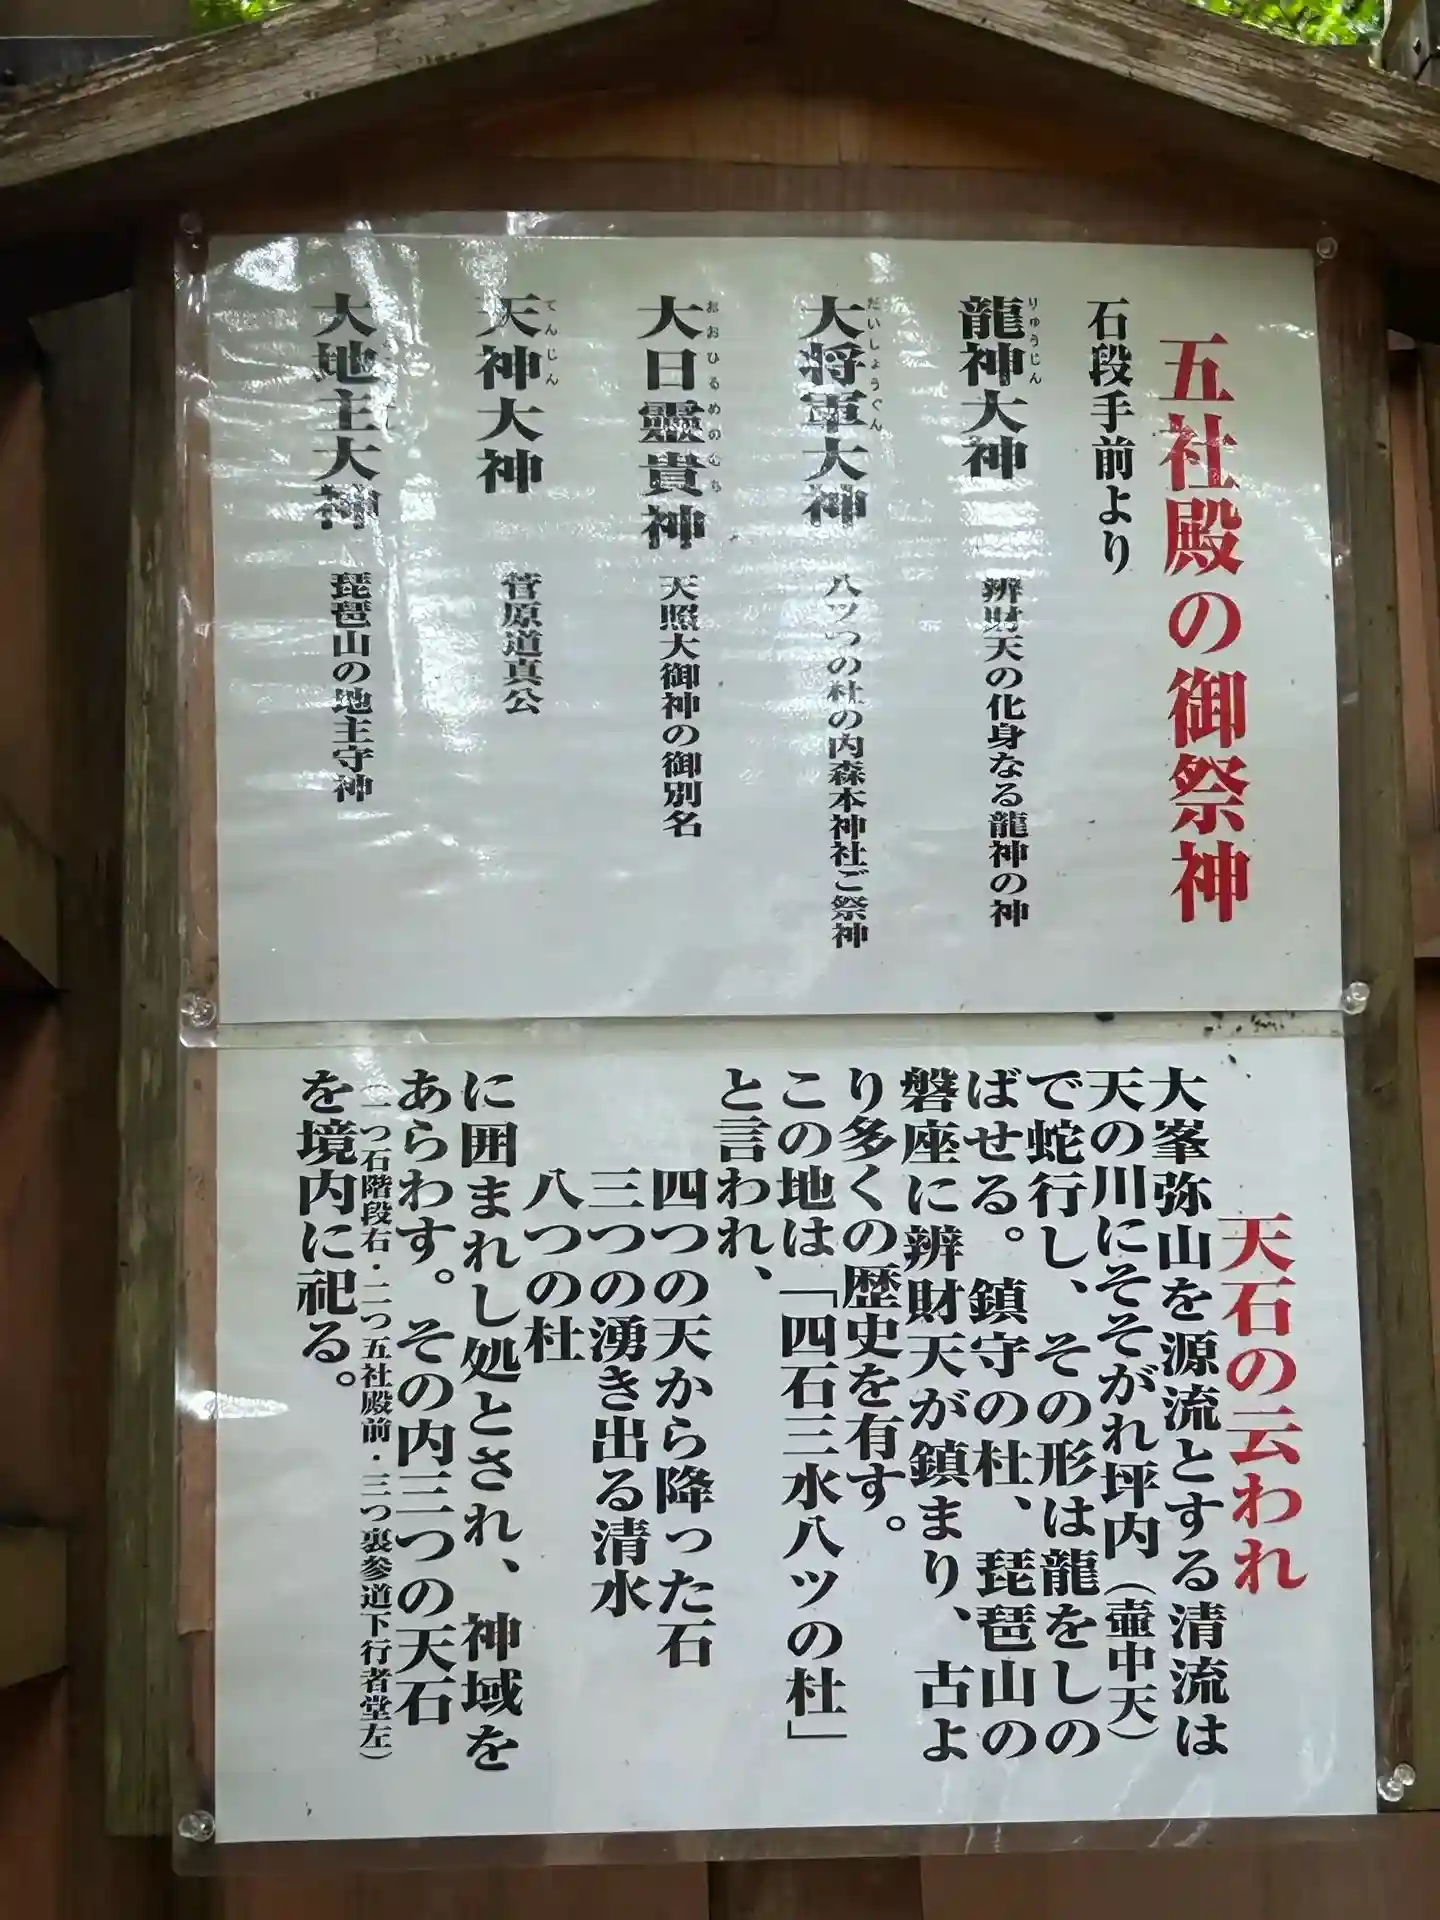 五社殿の御祭神
石段手前より
龍神大神 辨財天の化身なる龍神の神
りゅうじん
大将軍大神 八ツつの杜の内森本神社ご祭神
だいしょうぐん
大日靈貴神 天照大御神の御別名
おおひるめのむち
天神大神 菅原道真公
てんじん
大地主大神 琵琶山の地主守神
天石の云われ
大峯弥山を源流とする清流は
天の川にそそがれ坪内（壷中天）
で蛇行し、その形は龍をしの
ばせる。鎮守の杜、琵琶山の
磐座に辨財天が鎮まり、古よ
り多くの歴史を有す。
この地は「四石三水八ツの杜」
と言われ、
四つの天から降った石
三つの湧き出る清水
八つの杜
に囲まれし処とされ、神域を
あらわす。その内三つの天石
（一つ石階段右・二つ五社殿前・三つ裏参道下行者堂左）
を境内に祀る。